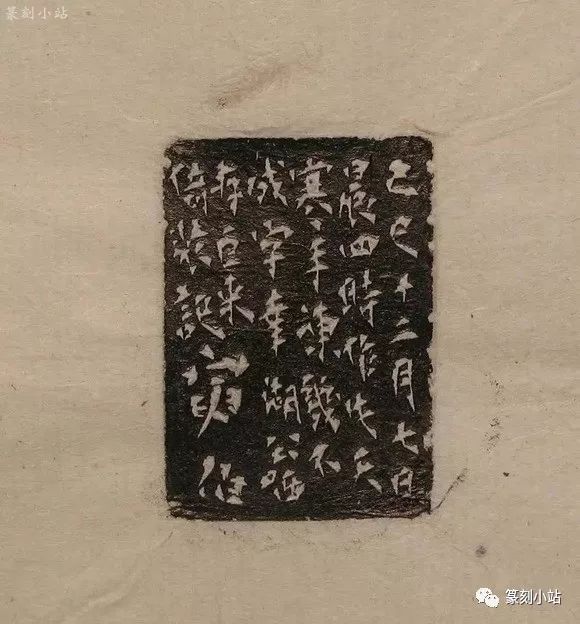 篆刻小站
己巳十二月七日
晨四時作此天
寒手凍幾不
成字幸湖公
存
倚裝記
篆刻小站